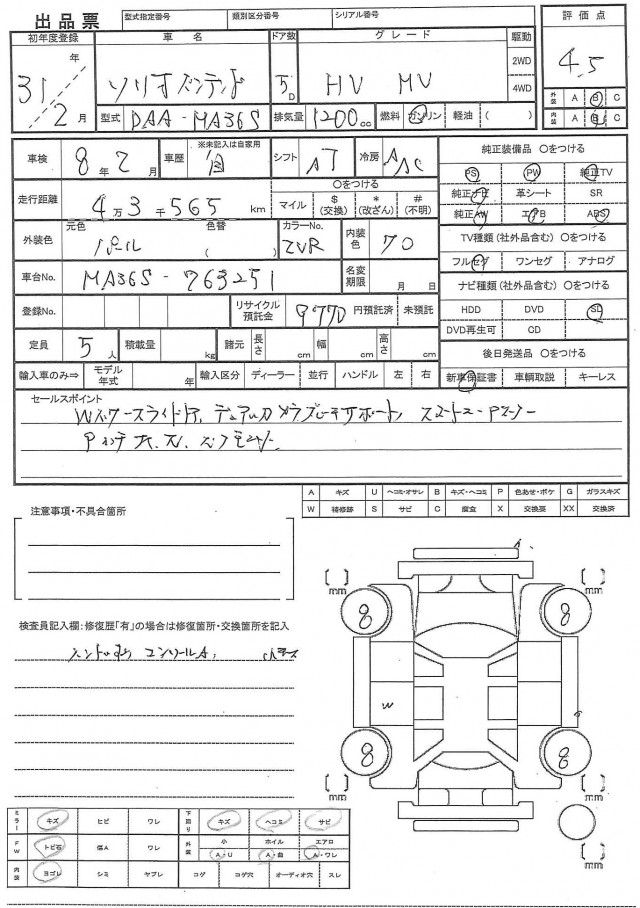 出品票 型式指定番号 類別区分番号 シリアル番号 評価点
初年度登録 車名 ドア数 グレード 駆動
31年 2月 ソリオバンディット 5D HV MV 2WD 4WD 4.5
型式 DAA-MA36S 排気量 1200cc 燃料 ガソリン 軽油 ( )
外装 A B C
内装 A B C
車検 8年2月 車歴 ※未記入は自家用 自 シフト AT 冷房 AAC
走行距離 4万3千565km ○をつける マイル $(交換) *(改ざん) #(不明)
外装色 元色 パール 色替 ( カラーNo. ZVR 内装色 70
車台No. MA36S-763251 名変期限 月 日
登録No. リサイクル預託金 9770 円預託済 未預託
定員 5人 積載量 kg 諸元 長さ cm 幅 cm 高さ cm
輸入車のみ⇒ モデル年式 年 輸入区分 ディーラー 並行 ハンドル 左 右
純正装備品 ○をつける
PS PW 純正TV
純正ナビ 革シート SR
純正AW エアB ABS
TV種類(社外品含む) ○をつける
フルセグ ワンセグ アナログ
ナビ種類(社外品含む) ○をつける
HDD DVD SD
DVD再生可 CD
後日発送品 ○をつける
新車保証書 車輌取説 キーレス
セールスポイント
Wパワースライドドア、デュアルカメラブレーキサポート、
注意事項・不具合箇所
A キズ U ヘコミ・オサレ B キズ・ヘコミ P 色あせ・ボケ G ガラスキズ
W 補修跡 S サビ C 腐食 X 交換要 XX 交換済
検査員記入欄:修復歴「有」の場合は修復箇所・交換箇所を記入
コンソールA,
[ ]mm [ ]mm
8 8
W
8 8
[ ]mm [ ]mm
[ ]mm
ミラー キズ ヒビ ワレ 下回り キズ ヘコミ サビ
FW トビ石 傷A ワレ 外装 小 A・U ホイル A・曲 エアロ A・ワレ
内装 ヨゴレ シミ ヤブレ コゲ コゲ穴 オーディオ穴 スレ